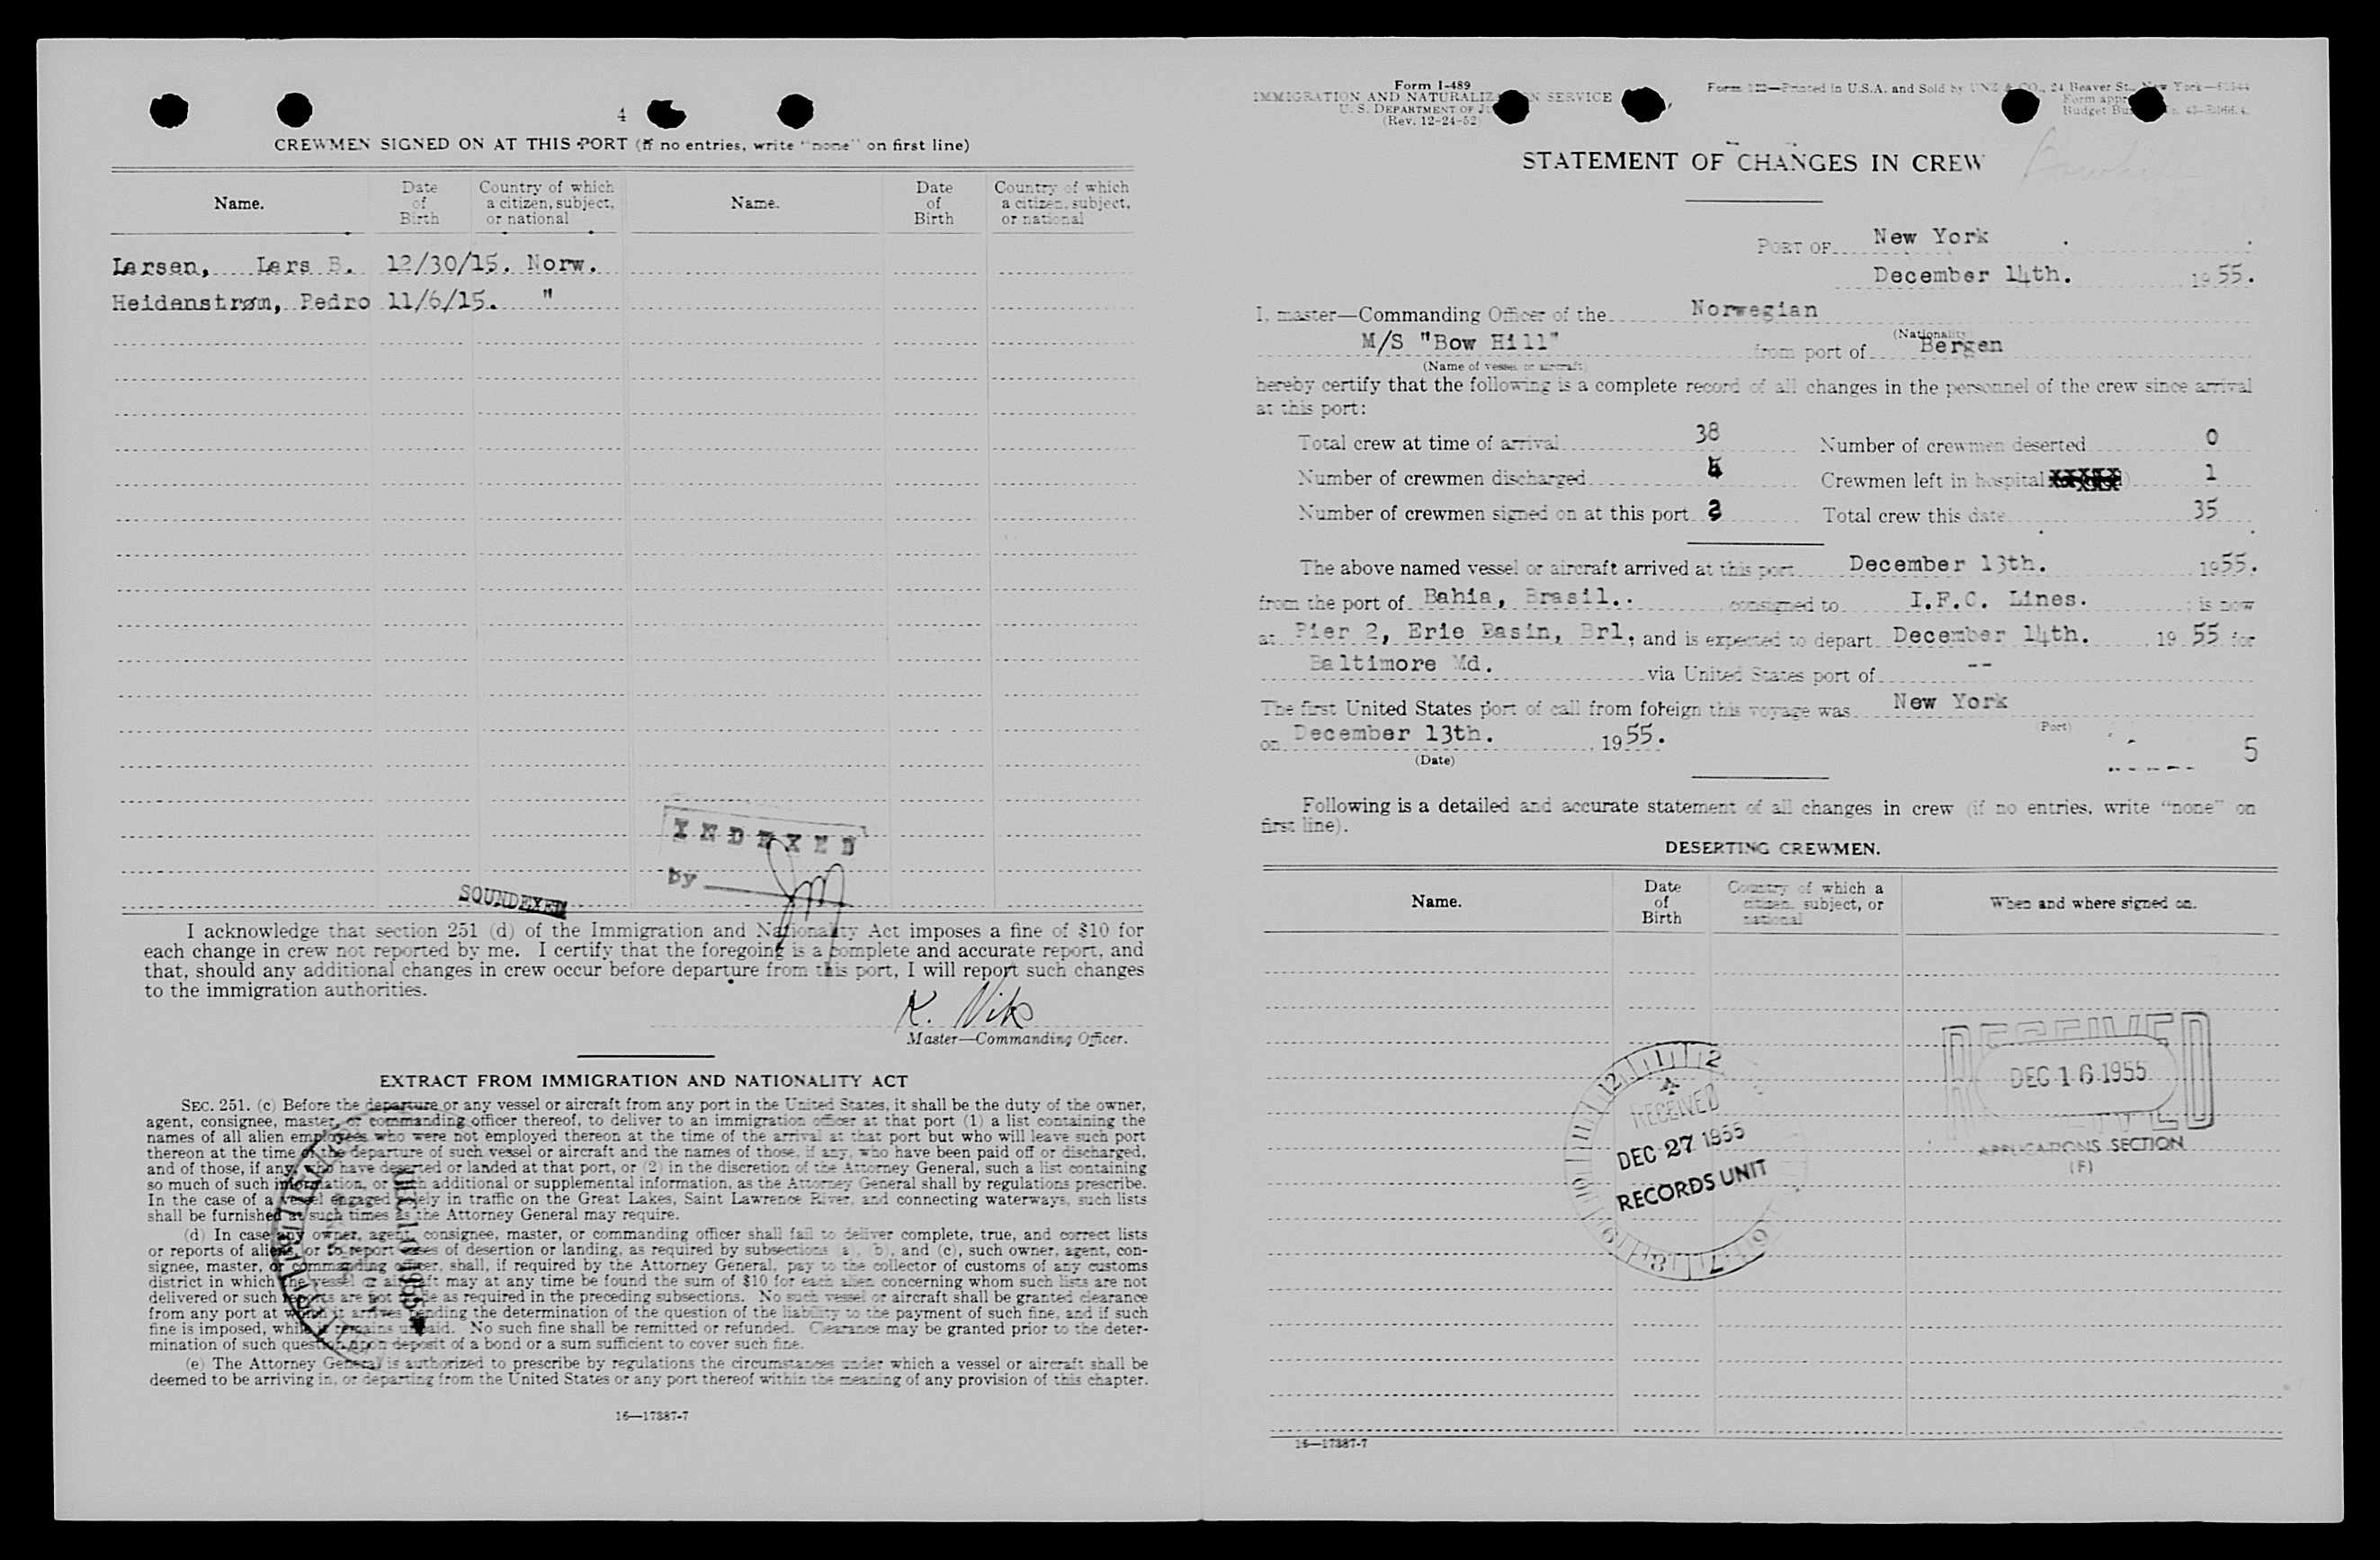 4
CREWMEN SIGNED ON AT THIS PORT (if no entries, write "none" on first line)
Name. Date of Birth Country of which a citizen, subject, or national Name. Date of Birth Country of which a citizen, subject, or national
Larsen, Lars B. 12/30/15. Norw.
Heidenstrøm, Pedro 11/6/15. "
INDEXED
by
SOUNDEXED
I acknowledge that section 251 (d) of the Immigration and Nationality Act imposes a fine of $10 for
each change in crew not reported by me. I certify that the foregoing is a complete and accurate report, and
that, should any additional changes in crew occur before departure from this port, I will report such changes
to the immigration authorities.
K. Vik
Master—Commanding Officer.
EXTRACT FROM IMMIGRATION AND NATIONALITY ACT
SEC. 251. (c) Before the departure or any vessel or aircraft from any port in the United States, it shall be the duty of the owner,
agent, consignee, master, or commanding officer thereof, to deliver to an immigration officer at that port (1) a list containing the
names of all alien employees who were not employed thereon at the time of the arrival at that port but who will leave such port
thereon at the time of the departure of such vessel or aircraft and the names of those, if any, who have been paid off or discharged,
and of those, if any, who have deserted or landed at that port, or (2) in the discretion of the Attorney General, such a list containing
so much of such information, or such additional or supplemental information, as the Attorney General shall by regulations prescribe.
In the case of a vessel engaged solely in traffic on the Great Lakes, Saint Lawrence River, and connecting waterways, such lists
shall be furnished at such times as the Attorney General may require.
(d) In case any owner, agent, consignee, master, or commanding officer shall fail to deliver complete, true, and correct lists
or reports of aliens, or to report cases of desertion or landing, as required by subsections (a), (b), and (c), such owner, agent, con-
signee, master, or commanding officer, shall, if required by the Attorney General, pay to the collector of customs of any customs
district in which the vessel or aircraft may at any time be found the sum of $10 for each alien concerning whom such lists are not
delivered or such reports are not made as required in the preceding subsections. No such vessel or aircraft shall be granted clearance
from any port at which it arrives pending the determination of the question of the liability to the payment of such fine, and if such
fine is imposed, while it remains unpaid. No such fine shall be remitted or refunded. Clearance may be granted prior to the deter-
mination of such question upon deposit of a bond or a sum sufficient to cover such fine.
(e) The Attorney General is authorized to prescribe by regulations the circumstances under which a vessel or aircraft shall be
deemed to be arriving in, or departing from the United States or any port thereof within the meaning of any provision of this chapter.
16—17387-7
Form I-489
IMMIGRATION AND NATURALIZATION SERVICE
U. S. DEPARTMENT OF
(Rev. 12-24-52)
Printed in U.S.A. and Sold by UNZ & CO., 24 Beaver St., New York
STATEMENT OF CHANGES IN CREW
PORT OF New York
December 14th. 1955.
I, master—Commanding Officer of the Norwegian
(Nationality)
M/S "Bow Hill" from port of Bergen
(Name of vessel or aircraft)
hereby certify that the following is a complete record of all changes in the personnel of the crew since arrival
at this port:
Total crew at time of arrival 38 Number of crewmen deserted 0
Number of crewmen discharged Crewmen left in hospital 1
Number of crewmen signed on at this port Total crew this date 35
The above named vessel or aircraft arrived at this port December 13th. 1955.
from the port of Bahia, Brasil. consigned to I.F.C. Lines. ; is now
at Pier 2, Erie Basin, Brl. and is expected to depart December 14th. 1955 for
Baltimore Md. via United States port of --
The first United States port of call from foreign this voyage was New York
(Port)
on December 13th. , 1955.
(Date)
5
Following is a detailed and accurate statement of all changes in crew (if no entries, write "none" on
first line).
DESERTING CREWMEN.
Name. Date of Birth Country of which a citizen, subject, or national When and where signed on.
RECEIVED
DEC 16 1955
APPLICATIONS SECTION
(F)
RECEIVED
DEC 27 1955
RECORDS UNIT
16—17387-7